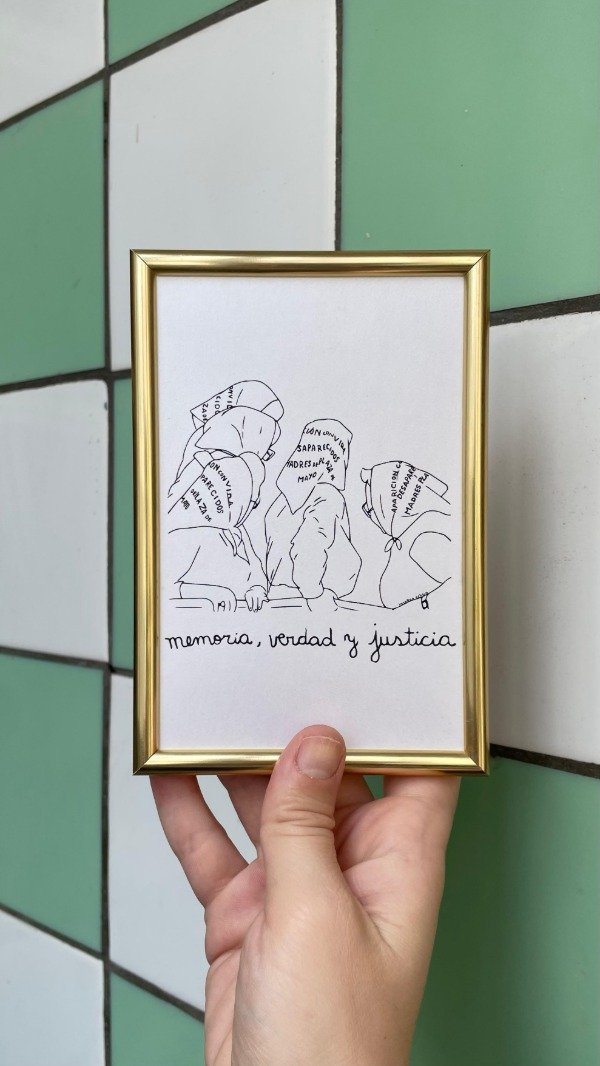 CIÓN CON VIDA
SAPARECIDOS
MADRES DE PLAZA D
MAYO
ÓN CON VIDA
PARECIDOS
PLAZA DE
APARICION C
DESAPARE
MADRES PLA
memoria, verdad y justicia